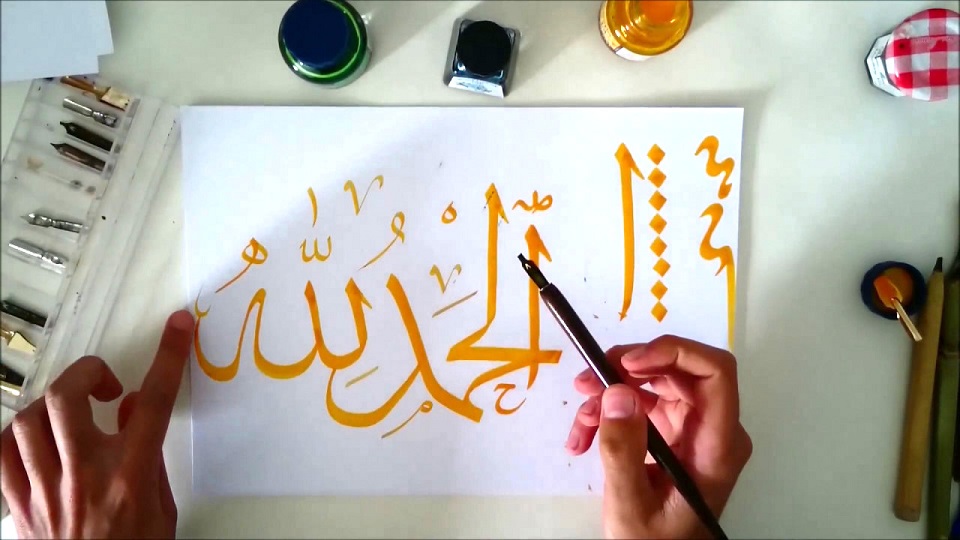 الْحمدُ للّٰه